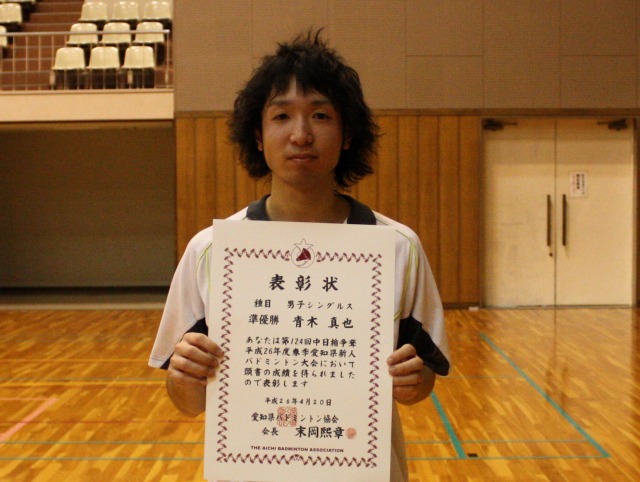 表彰状
種目 男子シングルス
準優勝 青木 真也
あなたは第124回中日楯争奪
平成26年度春季愛知県新人
バドミントン大会において
頭書の成績を得られました
ので表彰します
平成26年4月20日
愛知県バドミントン協会
会長 末岡熙章
THE AICHI BADMINTON ASSOCIATION